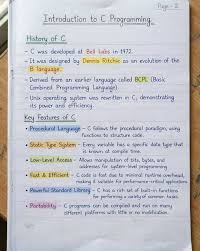 Page - 2
Introduction to C Programming
History of C
- C was developed at Bell Labs in 1972.
- It was designed by Dennis Ritchie as an evolution of the
B language.
- Derived from an earlier language called BCPL (Basic
Combined Programming Language)
- Unix operating system was rewritten in C, demonstrating
its power and efficiency.
Key Features of C
• Procedural Language - C follows the procedural paradigm, using
functions to structure code.
• Static Type System - Every variable has a specific data type that
is known at compile time.
• Low-Level Access - Allows manipulation of bits, bytes, and
addresses for system-level programming.
• Fast & Efficient - C code is fast due to minimal runtime overhead,
making it suitable for performance-critical applications.
• Powerful Standard Library - C has a rich set of built-in functions
for performing a variety of common tasks.
• Portability - C programs can be compiled and run on many
different platforms with little or no modification.